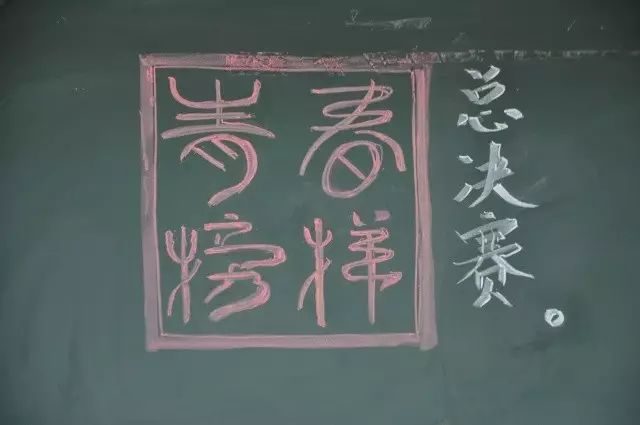 青春
榜样
总决赛。